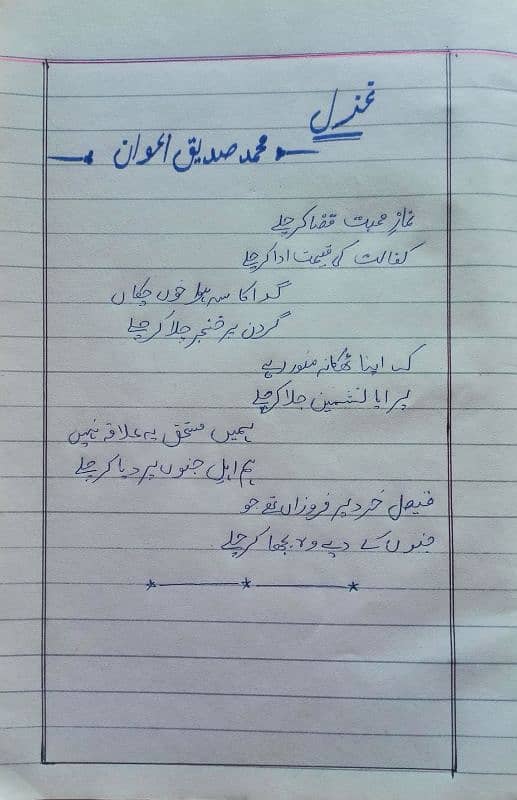 غزل
محمد صدیق اعوان
نمازِ محبت قضا کر چلے
کفالت کی قیمت ادا کر چلے
گدا کا سہ خوں چکاں
گردن پر خنجر چلا کر چلے
کہ اپنا ٹھکانہ منور رہے
پرایا نشیمن جلا کر چلے
ہمیں مستحق یہ علاقہ نہیں
ہم اہلِ جنوں پر دیا کر چلے
فصیل خرد پر فروزاں تھے جو
جنوں کے دیے وہ بجھا کر چلے